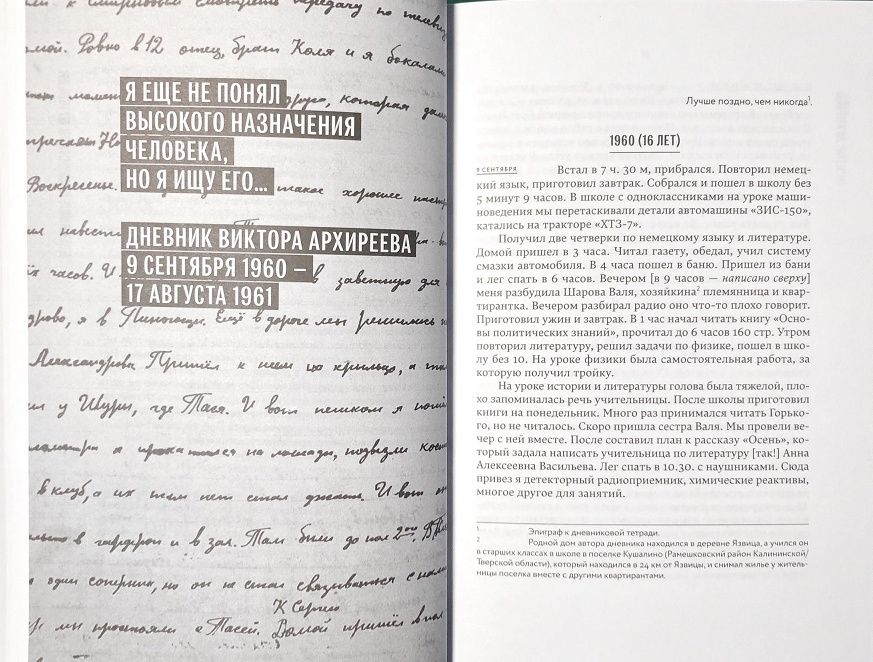 к Смирновым смотреть передачу по телевиз
мой. Ровно в 12 отец, брат Коля и я бокалами
Я ЕЩЕ НЕ ПОНЯЛ
которая
ВЫСОКОГО НАЗНАЧЕНИЯ
ЧЕЛОВЕКА,
Воскресенье.
НО Я ИЩУ ЕГО...
такое хорошее настр
ДНЕВНИК ВИКТОРА АРХИРЕЕВА
9 СЕНТЯБРЯ 1960 –
часов. И
в заветную для
17 АВГУСТА 1961
я в Пиногощи. Ещё в дороге мы решились
Александрова Пришёл к ним на крыльцо, а там
у Шуры, где Тася. И вот пешком я пошёл
на лошади, подвезли
в клуб, а их там нет стал ждать. И вот он
в гардероп и в зал. Там были до пол
один соперник, но он не стал связываться с нами
К Сергею
мы простояли с Тасей. Домой пришёл в пол
Лучше поздно, чем никогда1.
1960 (16 ЛЕТ)
9 СЕНТЯБРЯ Встал в 7 ч. 30 м, прибрался. Повторил немец-
кий язык, приготовил завтрак. Собрался и пошел в школу без
5 минут 9 часов. В школе с одноклассниками на уроке маши-
новедения мы перетаскивали детали автомашины «ЗИС-150»,
катались на тракторе «ХТЗ-7».
Получил две четверки по немецкому языку и литературе.
Домой пришел в 3 часа. Читал газету, обедал, учил систему
смазки автомобиля. В 4 часа пошел в баню. Пришел из бани
и лег спать в 6 часов. Вечером [в 9 часов — написано сверху]
меня разбудила Шарова Валя, хозяйкина2 племянница и квар-
тирантка. Вечером разбирал радио оно что-то плохо говорит.
Приготовил ужин и завтрак. В 1 час начал читать книгу «Осно-
вы политических знаний», прочитал до 6 часов 160 стр. Утром
повторил литературу, решил задачи по физике, пошел в шко-
лу без 10. На уроке физики была самостоятельная работа, за
которую получил тройку.
На уроке истории и литературы голова была тяжелой, пло-
хо запоминалась речь учительницы. После школы приготовил
книги на понедельник. Много раз принимался читать Горько-
го, но не читалось. Скоро пришла сестра Валя. Мы провели ве-
чер с ней вместе. После составил план к рассказу «Осень», ко-
торый задала написать учительница по литературу [так!] Анна
Алексеевна Васильева. Лег спать в 10.30. с наушниками. Сюда
привез я детекторный радиоприемник, химические реактивы,
многое другое для занятий.
1 Эпиграф к дневниковой тетради.
2 Родной дом автора дневника находился в деревне Язвица, а учился он
в старших классах в школе в поселке Кушалино (Рамешковский район Калининской/
Тверской области), который находился в 24 км от Язвицы, и снимал жилье у житель-
ницы поселка вместе с другими квартирантами.